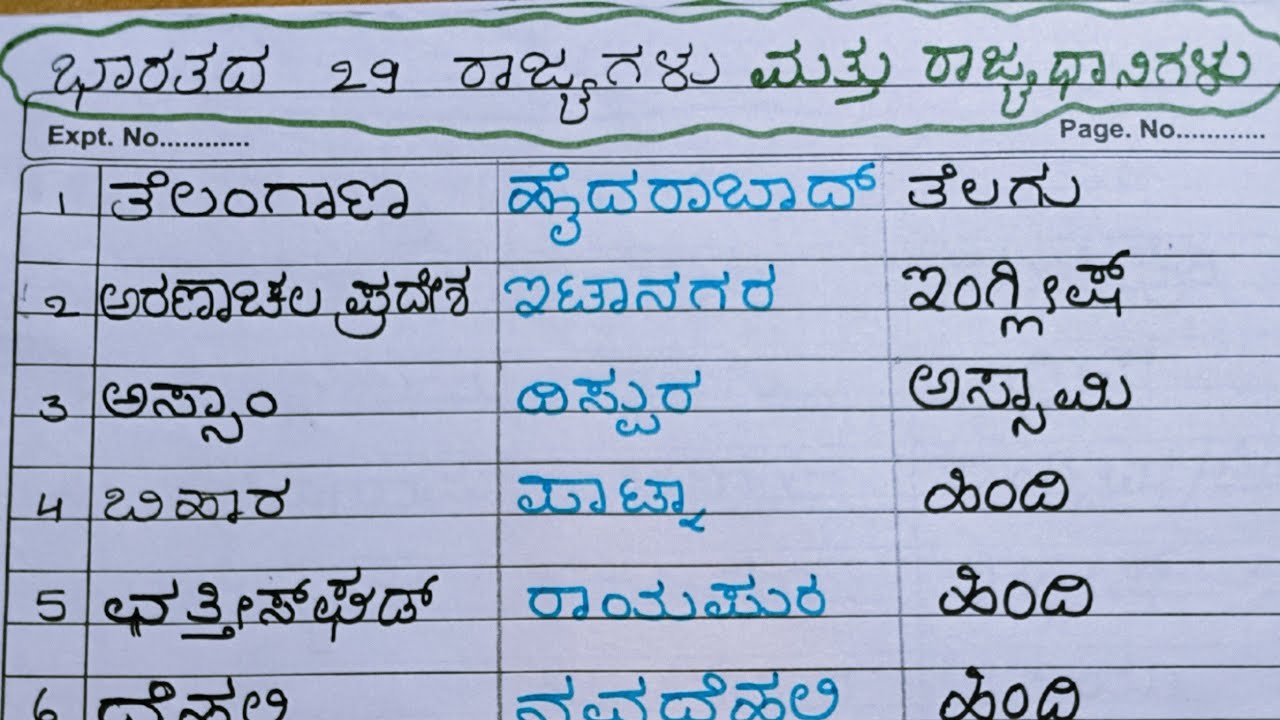 ಭಾರತದ 29 ರಾಜ್ಯಗಳು ಮತ್ತು ರಾಜ್ಯಧಾನಿಗಳು
Expt. No............ Page. No............
1 ತೆಲಂಗಾಣ ಹೈದರಾಬಾದ್ ತೆಲಗು
2 ಅರಣಾಚಲ ಪ್ರದೇಶ ಇಟಾನಗರ ಇಂಗ್ಲೀಷ್
3 ಅಸ್ಸಾಂ ದಿಸ್ಪುರ ಅಸ್ಸಾಮಿ
4 ಬಿಹಾರ ಪಾಟ್ನಾ ಹಿಂದಿ
5 ಛತ್ತೀಸ್‌ಘಡ್ ರಾಯಪುರ ಹಿಂದಿ
6 ದೆಹಲಿ ನವದೆಹಲಿ ಹಿಂದಿ